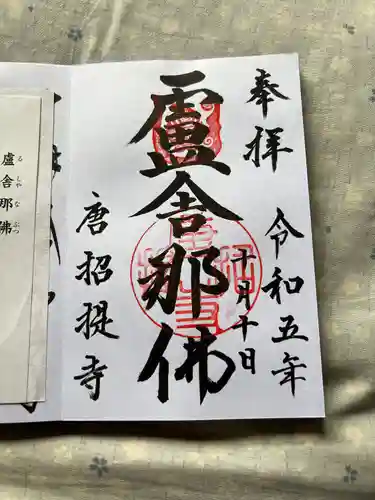 奉拝
令和五年
十月十日
盧舎那佛
唐招提寺
盧舎那佛
るしゃなぶつ